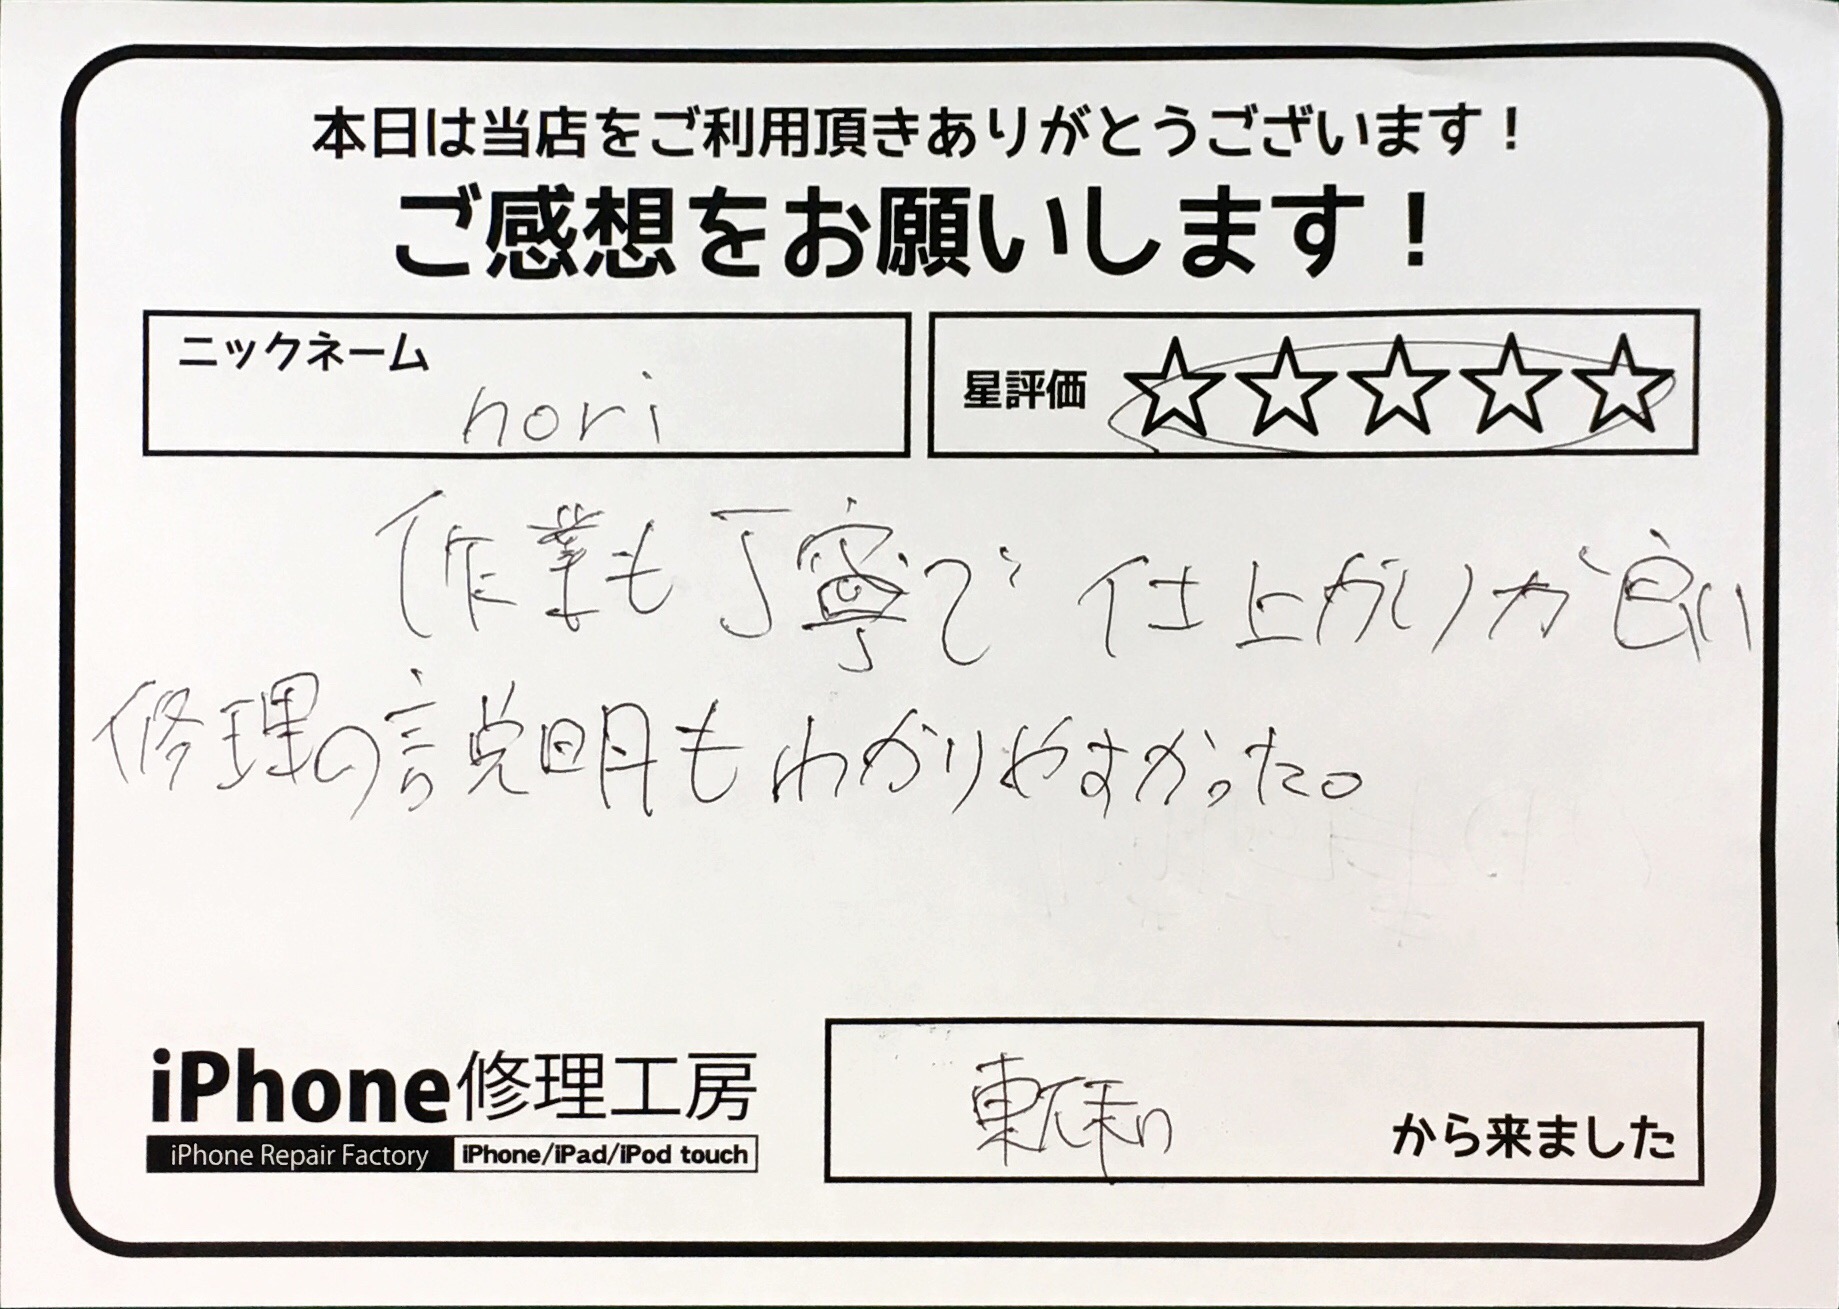 本日は当店をご利用頂きありがとうございます！
ご感想をお願いします！
ニックネーム
nori
星評価 ☆☆☆☆☆
作業も丁寧で 仕上がりが良い
修理の説明もわかりやすかった。
iPhone修理工房
iPhone Repair Factory iPhone/iPad/iPod touch
から来ました